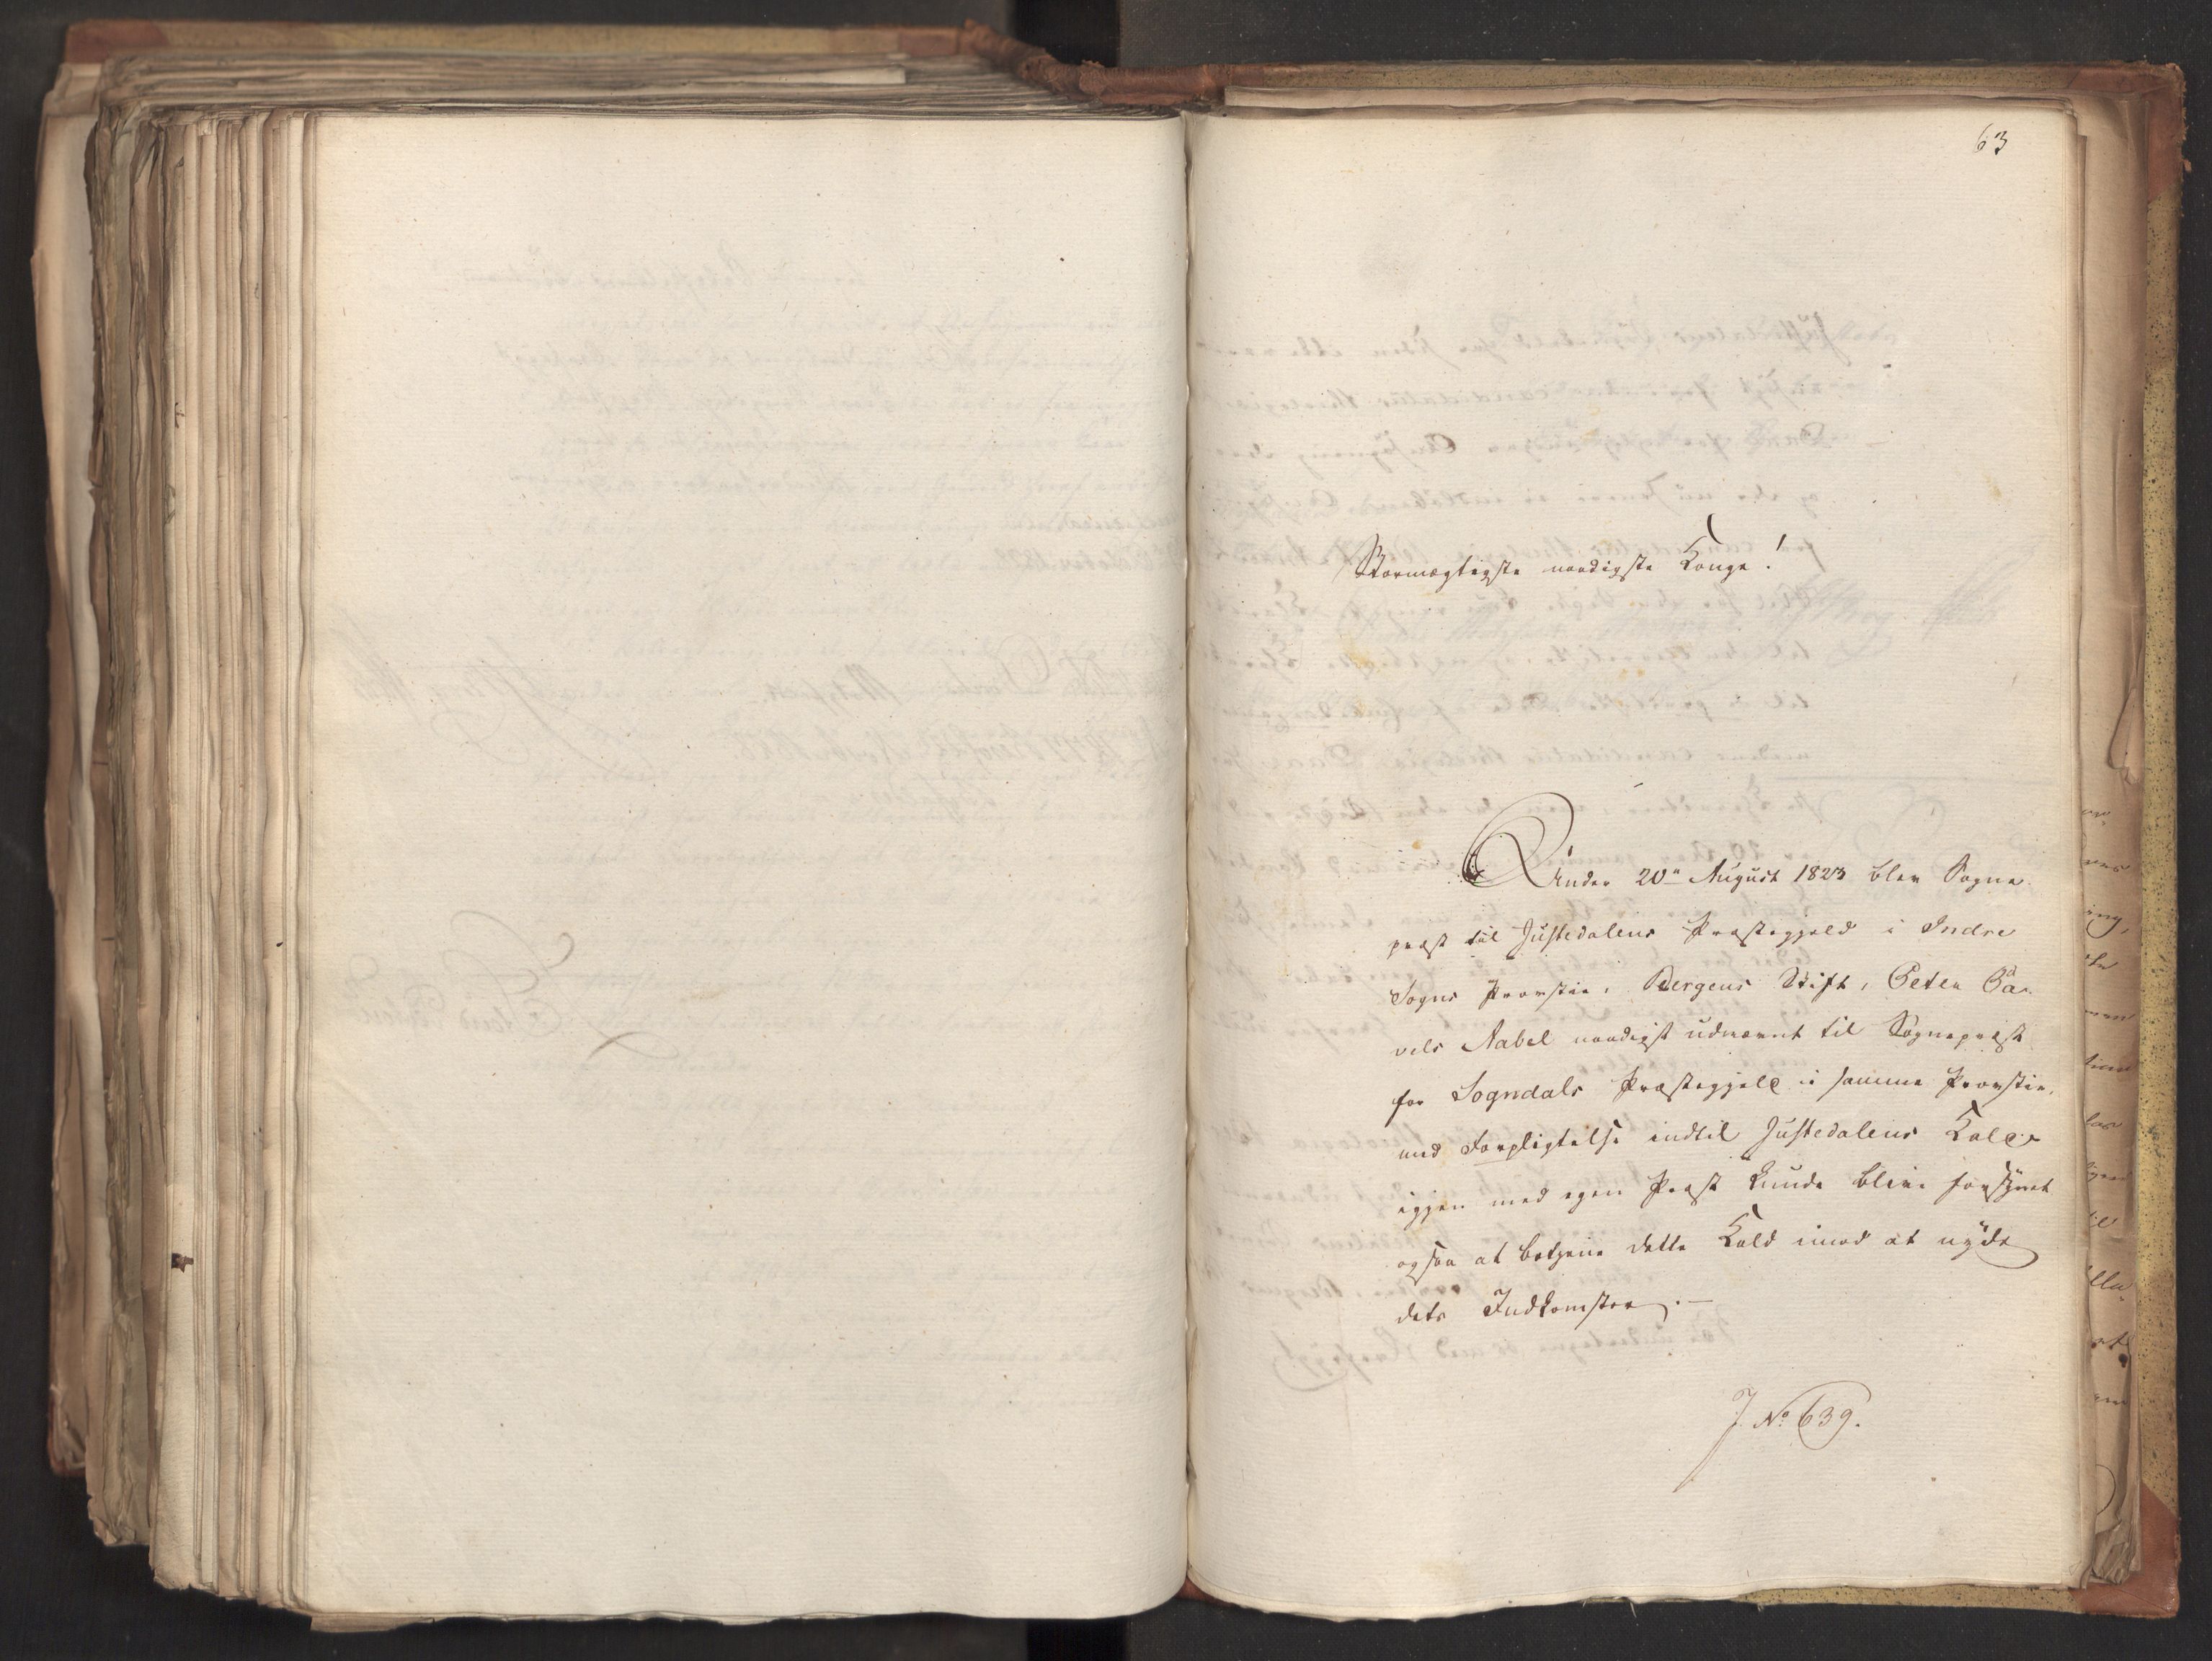 63
Stormægtigste naadigste Konge!
Under 20de August 1823 blev Sogne-
præst til Justedalens Præstegjeld i Indre
Sogns Provstie, Bergens Stift, Peter Pa-
vels Aabel naadigst udnævnt til Sognepræst
for Sogndals Præstegjeld i samme Provstie,
med Forpligtelse indtil Justedalens Kald
igjen med egen Præst kunde blive forsynet
ogsaa at betjene dette Kald imod at nyde
dets Indkomster.-
J No 639.